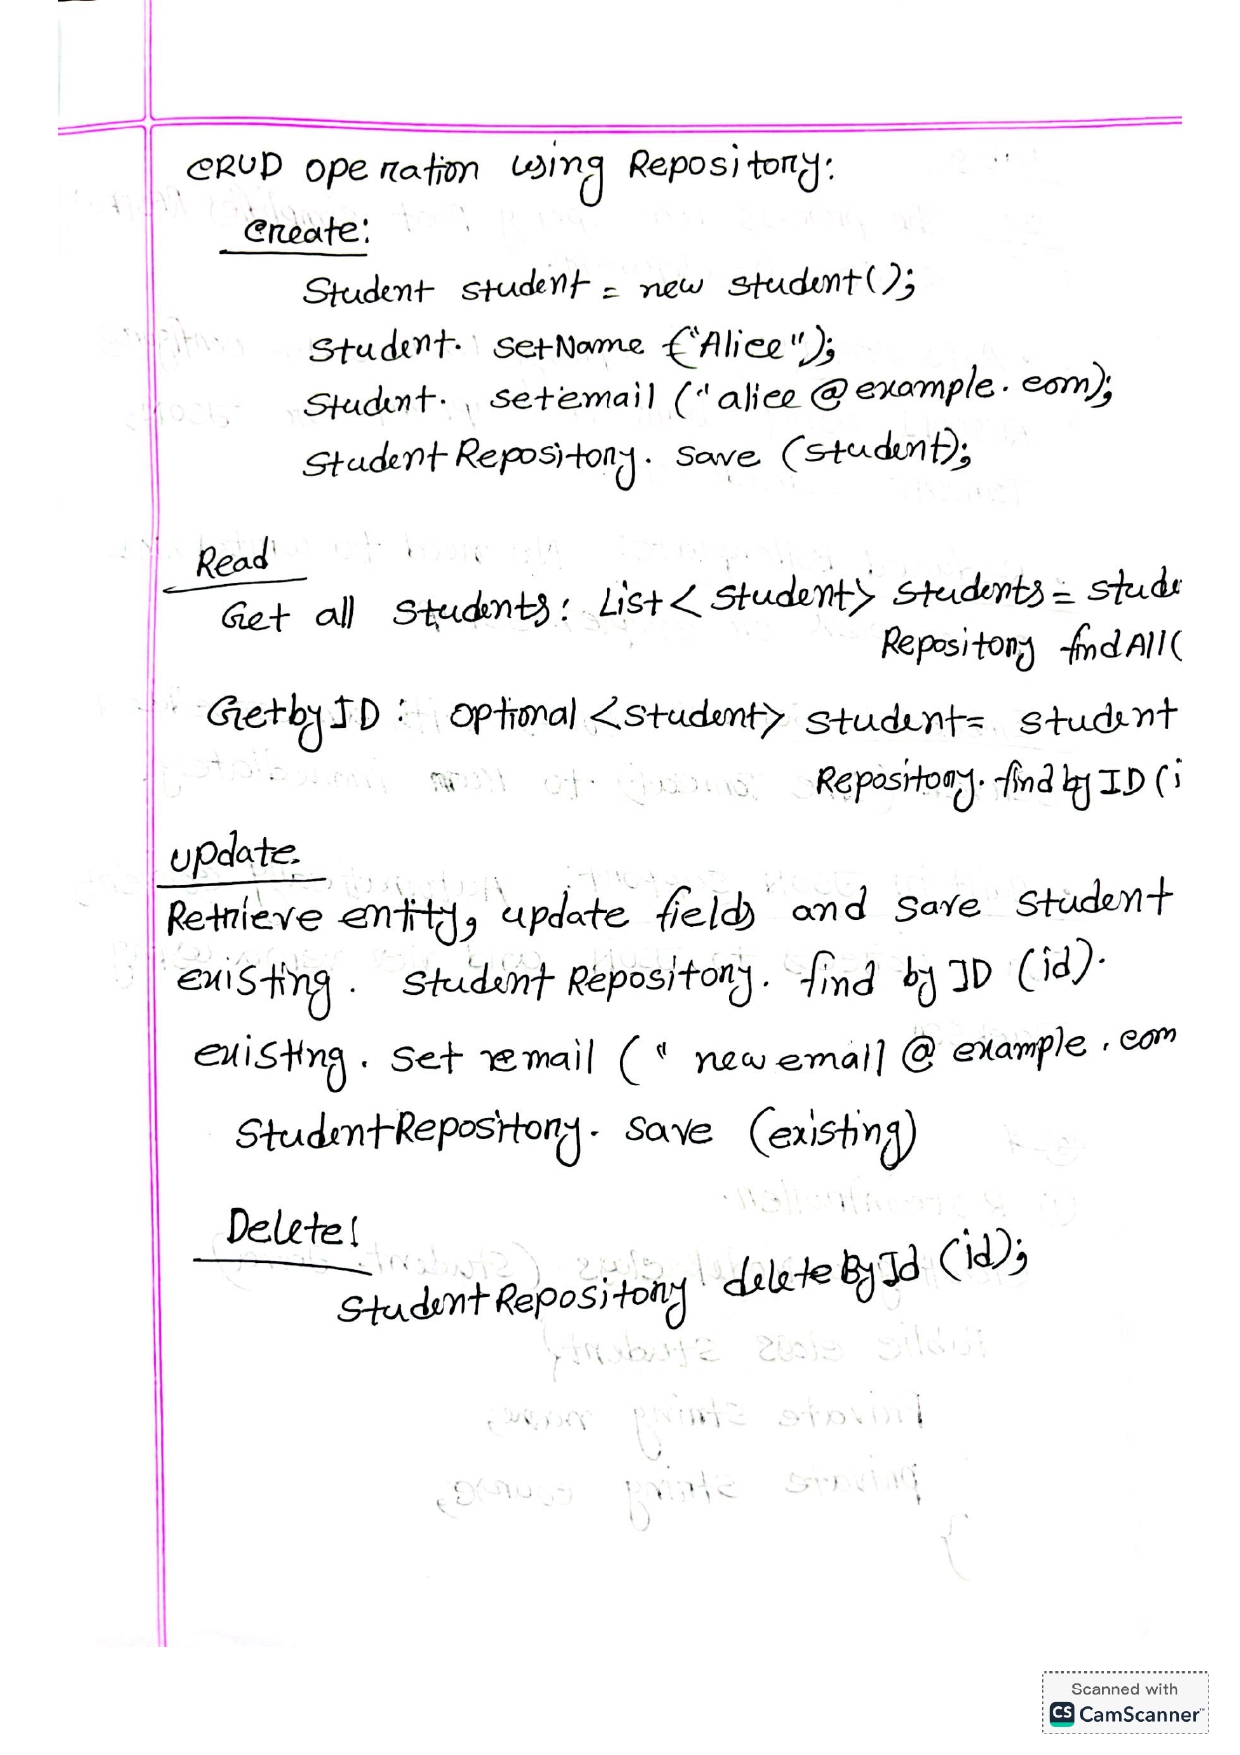 CRUD operation using Repository:
Create:
Student student = new student();
Student. setName ("Alice");
Student. setemail ("alice@example.com);
StudentRepository. save (student);
Read
Get all students: List<student> students = stude
Repository findAll(
GetbyID: optional <student> student= student
Repository. find by ID (i
update.
Retrieve entity, update fields and save student
existing. studentRepository. find by ID (id).
existing. set email (" newemail@example.com
StudentRepository. save (existing)
Delete!
StudentRepository deleteById (id);
Scanned with
CS CamScanner